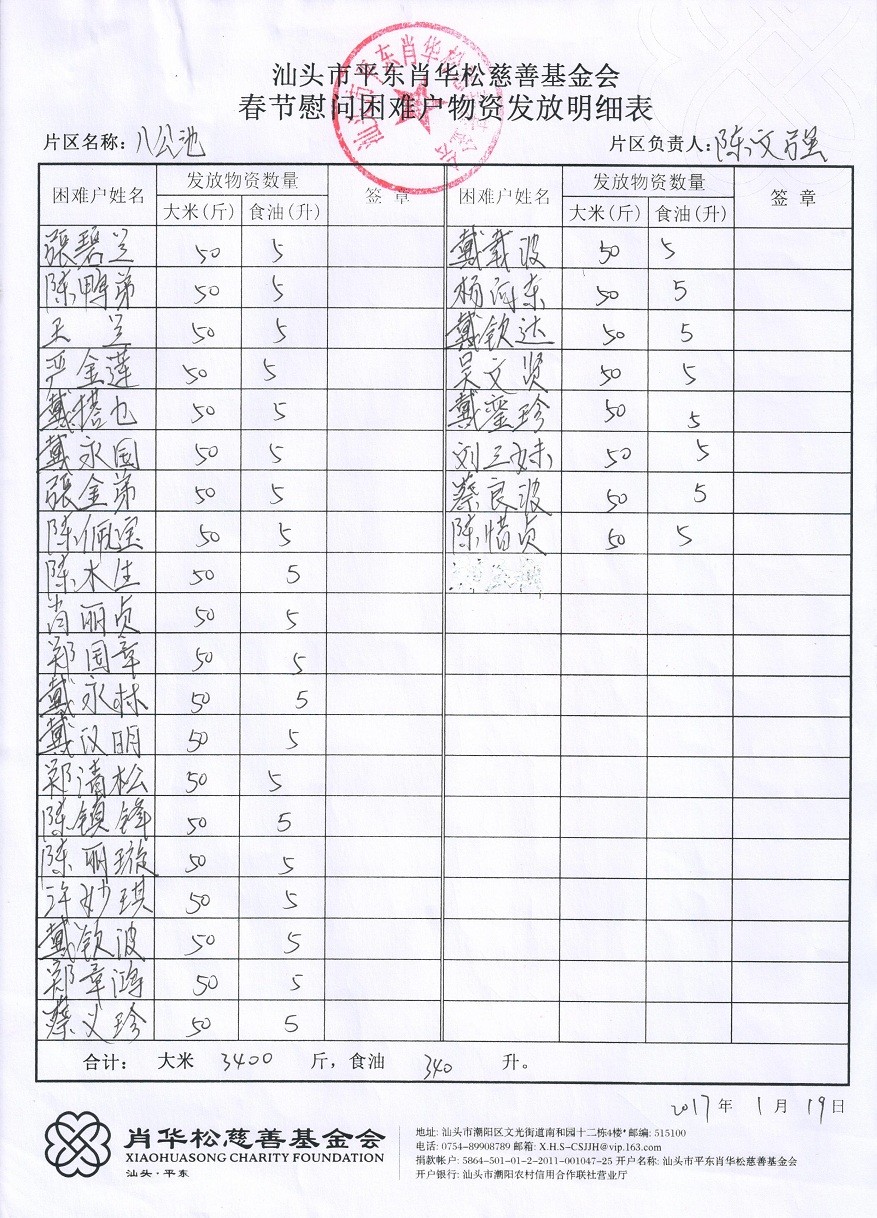 汕头市平东肖华松慈善基金会
春节慰问困难户物资发放明细表
片区名称：八公池 片区负责人：陈文强
困难户姓名 发放物资数量 签章 困难户姓名 发放物资数量 签章
大米(斤) 食油(升) 大米(斤) 食油(升)
張碧兰 50 5 戴载波 50 5
陈鸭弟 50 5 杨向东 50 5
王兰 50 5 戴钦达 50 5
严金莲 50 5 吴文贤 50 5
戴搭也 50 5 戴 珍 50 5
戴永国 50 5 刘三妹 50 5
張金弟 50 5 蔡良波 50 5
陈佩 50 5 陈惜贞 50 5
陈木生 50 5
肖丽贞 50 5
郑国章 50 5
戴永林 50 5
戴汉明 50 5
郑清松 50 5
陈镇锋 50 5
陈丽璇 50 5
许妙琪 50 5
戴钦波 50 5
郑章鸿 50 5
蔡义珍 50 5
合计： 大米 3400 斤，食油 340 升。
2017年 1月 19日
肖华松慈善基金会
XIAOHUASONG CHARITY FOUNDATION
汕头·平东
地址: 汕头市潮阳区文光街道南和园十二栋4楼*邮编: 515100
电话: 0754-89908789 邮箱: X.H.S-CSJJH@vip.163.com
捐款帐户: 5864-501-01-2-2011-001047-25 开户名称: 汕头市平东肖华松慈善基金会
开户银行: 汕头市潮阳农村信用合作联社营业厅